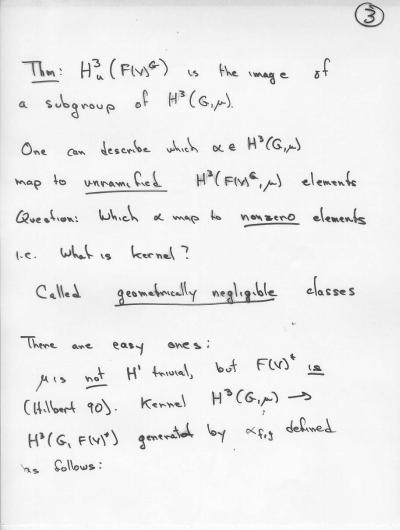 3
Thm: H³ᵤ(F(V)ᴳ) is the image of
a subgroup of H³(G,μ).
One can describe which α ∈ H³(G,μ)
map to unramified H³(F(V)ᴳ,μ) elements
Question: Which α map to nonzero elements
i.e. What is kernel?
Called geometrically negligible classes
There are easy ones:
μ is not H¹ trivial, but F(V)* is
(Hilbert 90). Kernel H³(G,μ) →
H³(G, F(V)*) generated by α_f,g defined
as follows: